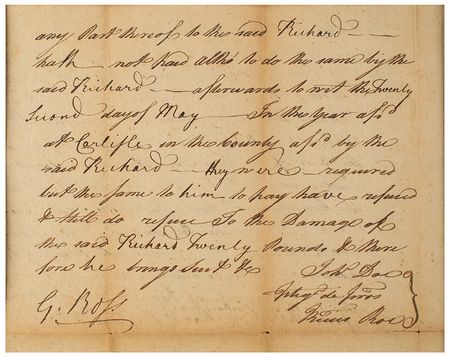 any Part thereof to the said Richard
hath not paid altho' to do the same by the
said Richard afterwards to wit the Twenty
second day of May In the Year afsd
at Carlisle in the County afsd by the
said Richard they were required
but the same to him to pay have refused
& still do refuse To the Damage of
the said Richard Twenty Pounds & there
fore he brings suit &c
John Doe
G. Ross
Richd Roe